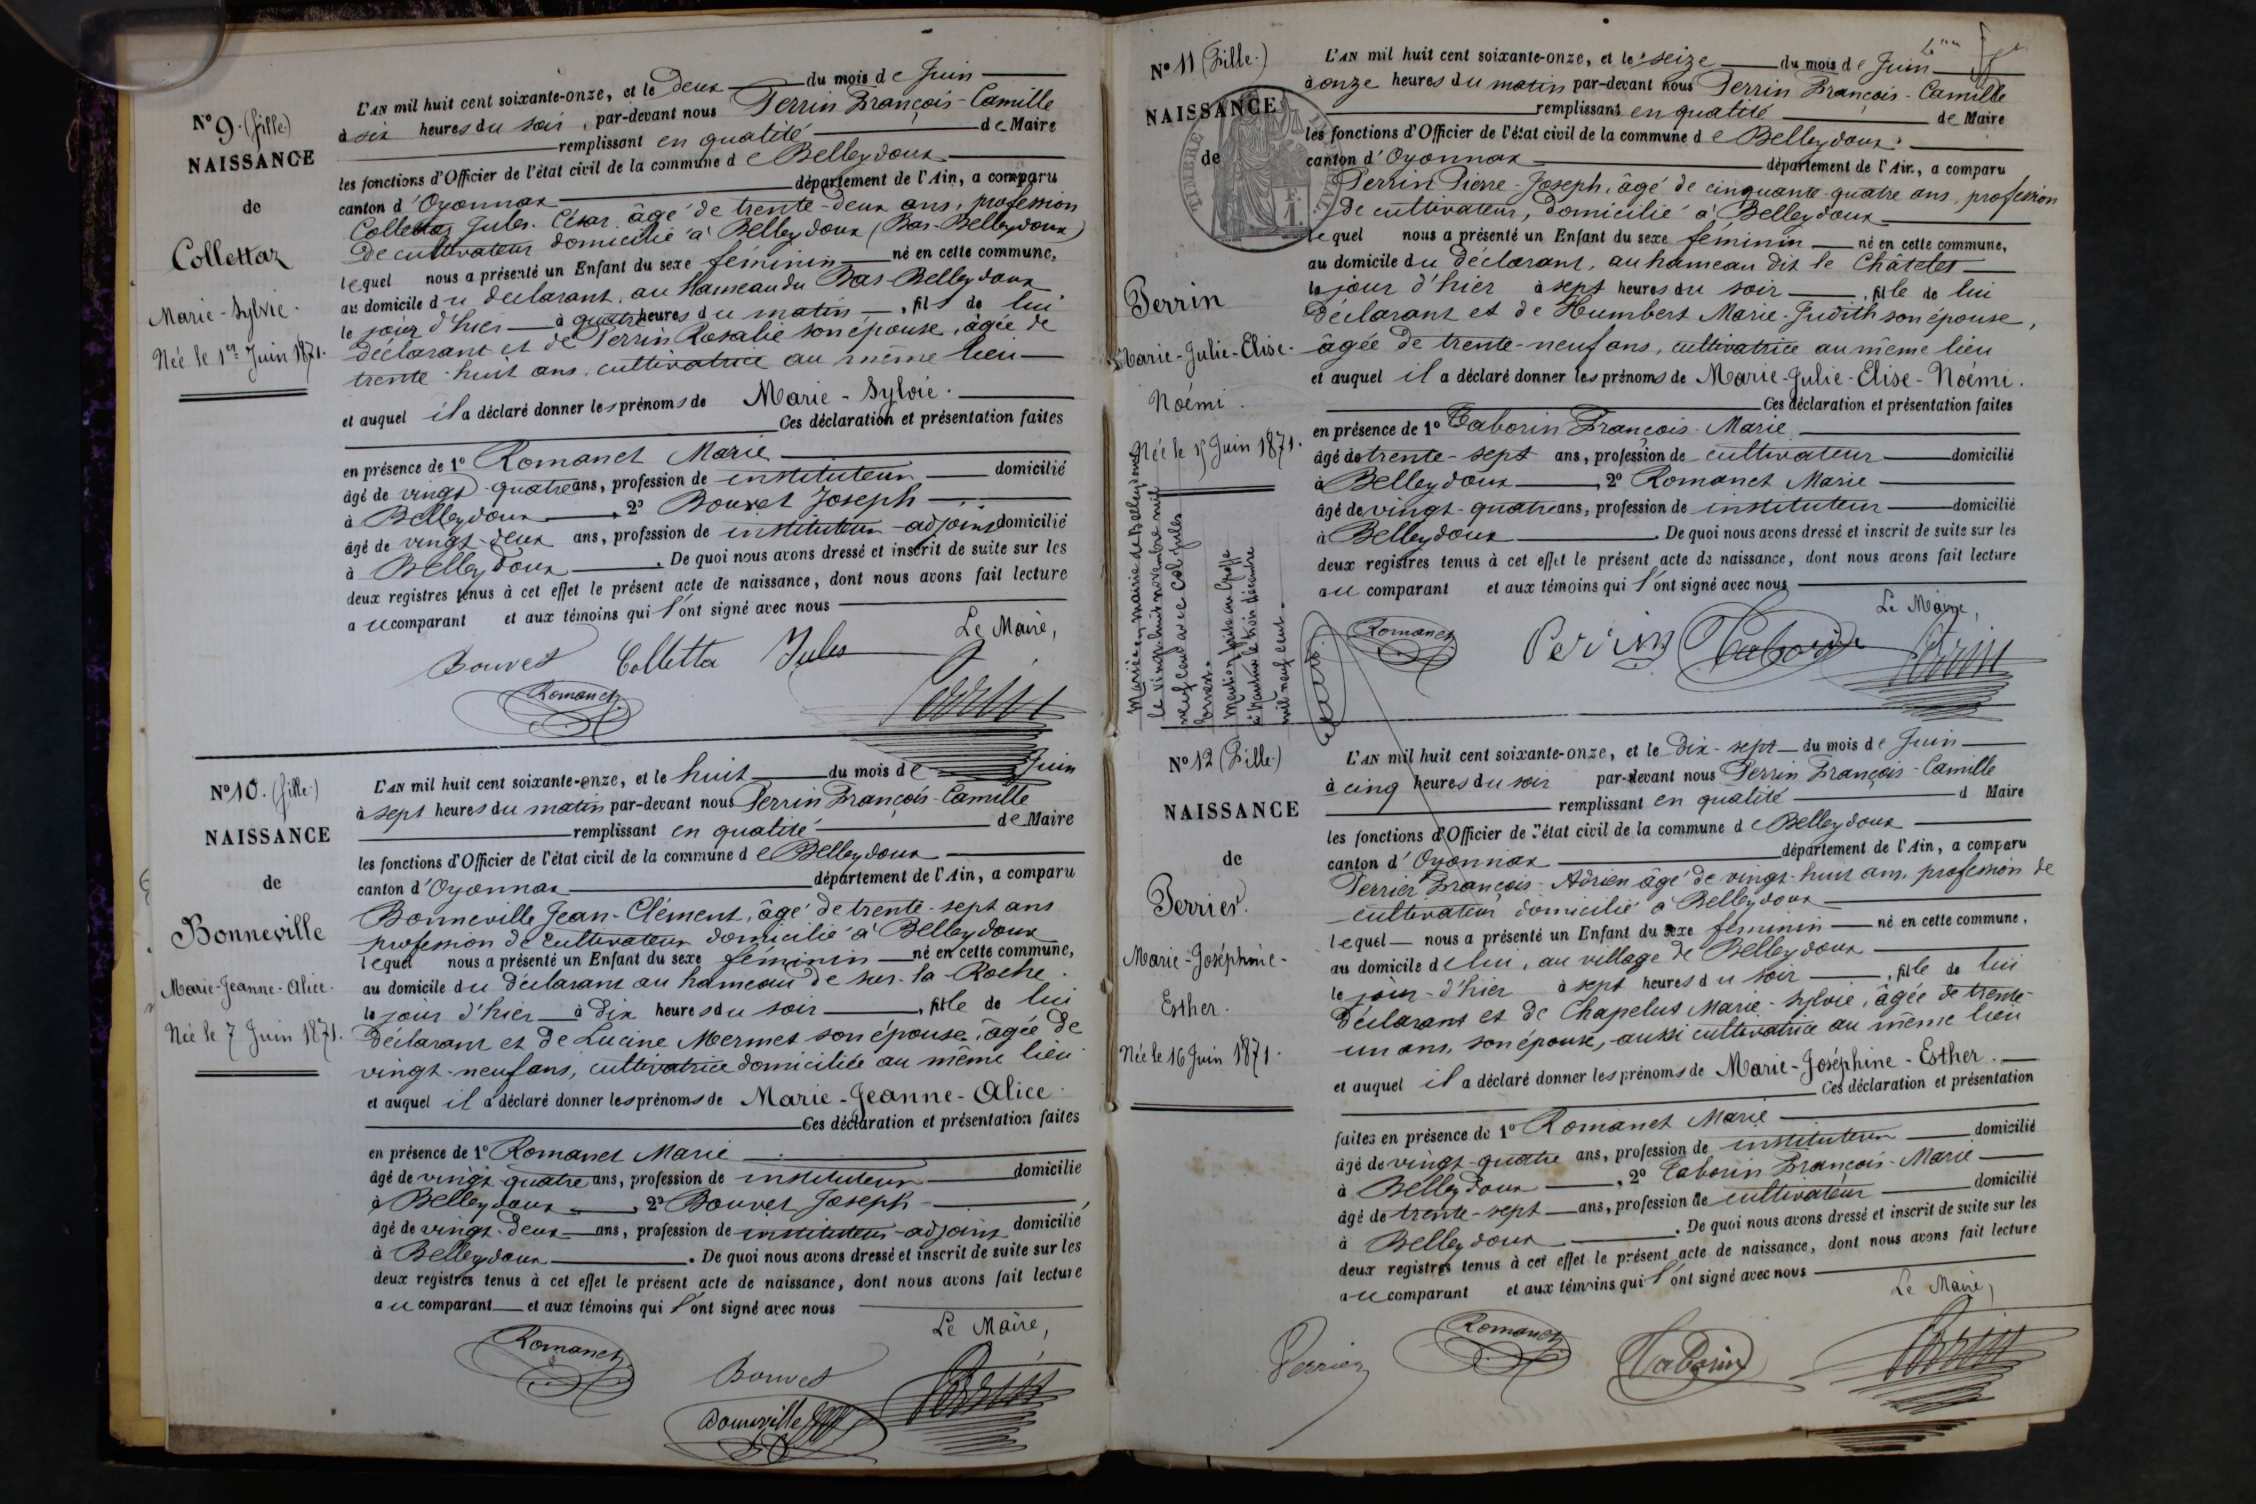 N° 9. (fille)
NAISSANCE
de
Collettaz
Marie-Sylvie.
Née le 1er Juin 1871.
L'AN mil huit cent soixante-onze, et le Deux du mois de Juin
à six heures du soir, par-devant nous Perrin François-Camille
remplissant en qualité de Maire
les fonctions d'Officier de l'état civil de la commune de Belleydoux
canton d'Oyonnax département de l'Ain, a comparu
Collettaz Jules-César, âgé de trente-deux ans, profession
de cultivateur domicilié à Belleydoux (Bas-Belleydoux)
lequel nous a présenté un Enfant du sexe féminin né en cette commune,
au domicile du déclarant, au hameau du Bas-Belleydoux
le jour d'hier à quatre heures du matin, fille de lui
déclarant et de Perrin Rosalie son épouse, âgée de
trente-huit ans, cultivatrice au même lieu
et auquel il a déclaré donner les prénoms de Marie-Sylvie.
Ces déclaration et présentation faites
en présence de 1° Romanet Marie
âgé de vingt-quatre ans, profession de instituteur domicilié
à Belleydoux, 2° Bouvet Joseph
âgé de vingt-deux ans, profession de instituteur-adjoint domicilié
à Belleydoux. De quoi nous avons dressé et inscrit de suite sur les
deux registres tenus à cet effet le présent acte de naissance, dont nous avons fait lecture
au comparant et aux témoins qui l'ont signé avec nous
Le Maire,
Bouvet Colletta Jules
Romanet Perrin
N° 10. (fille)
NAISSANCE
de
Bonneville
Marie-Jeanne-Alice.
Née le 7 Juin 1871.
L'AN mil huit cent soixante-onze, et le huit du mois de Juin
à sept heures du matin par-devant nous Perrin François-Camille
remplissant en qualité de Maire
les fonctions d'Officier de l'état civil de la commune de Belleydoux
canton d'Oyonnax département de l'Ain, a comparu
Bonneville Jean-Clément, âgé de trente-sept ans
profession de cultivateur domicilié à Belleydoux
lequel nous a présenté un Enfant du sexe féminin né en cette commune,
au domicile du déclarant au hameau de sur-la-Roche.
le jour d'hier à dix heures du soir, fille de lui
déclarant et de Lucine Mermet son épouse, âgée de
vingt-neuf ans, cultivatrice domiciliée au même lieu
et auquel il a déclaré donner les prénoms de Marie-Jeanne-Alice
Ces déclaration et présentation faites
en présence de 1° Romanet Marie
âgé de vingt-quatre ans, profession de instituteur domicilié
à Belleydoux, 2° Bouvet Joseph
âgé de vingt-deux ans, profession de instituteur-adjoint domicilié
à Belleydoux. De quoi nous avons dressé et inscrit de suite sur les
deux registres tenus à cet effet le présent acte de naissance, dont nous avons fait lecture
au comparant et aux témoins qui l'ont signé avec nous
Le Maire,
Romanet Bouvet Perrin
Bonneville
N° 11 (Fille.)
NAISSANCE
de
Perrin
Marie-Julie-Elise-
Noémi.
Née le 15 Juin 1871.
Mariée en mairie de Belleydoux
le vingt-huit novembre mil
neuf cent avec
Mention faite au Greffe
à Nantua le trois décembre
mil neuf cent.
TIMBRE
L'AN mil huit cent soixante-onze, et le seize du mois de Juin
à onze heures du matin par-devant nous Perrin François-Camille
remplissant en qualité de Maire
les fonctions d'Officier de l'état civil de la commune de Belleydoux.
canton d'Oyonnax département de l'Ain, a comparu
Perrin Pierre-Joseph, âgé de cinquante-quatre ans, profession
de cultivateur, domicilié à Belleydoux
lequel nous a présenté un Enfant du sexe féminin né en cette commune,
au domicile du déclarant, au hameau dit le Châtelet
le jour d'hier à sept heures du soir, fille de lui
déclarant et de Humbert Marie-Judith son épouse,
âgée de trente-neuf ans, cultivatrice au même lieu
et auquel il a déclaré donner les prénoms de Marie-Julie-Elise-Noémi.
Ces déclaration et présentation faites
en présence de 1° Taborin François-Marie
âgé de trente-sept ans, profession de cultivateur domicilié
à Belleydoux, 2° Romanet Marie
âgé de vingt-quatre ans, profession de instituteur domicilié
à Belleydoux. De quoi nous avons dressé et inscrit de suite sur les
deux registres tenus à cet effet le présent acte de naissance, dont nous avons fait lecture
au comparant et aux témoins qui l'ont signé avec nous
Le Maire,
Romanet Perrin Taborin Perrin
N° 12 (Fille)
NAISSANCE
de
Perrier.
Marie-Joséphine-
Esther.
Née le 16 Juin 1871.
L'AN mil huit cent soixante-onze, et le dix-sept du mois de Juin
à cinq heures du soir par-devant nous Perrin François-Camille
remplissant en qualité d Maire
les fonctions d'Officier de l'état civil de la commune de Belleydoux
canton d'Oyonnax département de l'Ain, a comparu
Perrier François-Adrien âgé de vingt-huit ans, profession de
cultivateur domicilié à Belleydoux
lequel nous a présenté un Enfant du sexe féminin né en cette commune,
au domicile de lui, au village de Belleydoux
le jour-d'hier à sept heures du soir, fille de lui
déclarant et de Chapelut Marie-Sylvie, âgée de trente-
un ans, son épouse, aussi cultivatrice au même lieu
et auquel il a déclaré donner les prénoms de Marie-Joséphine-Esther.
Ces déclaration et présentation
faites en présence de 1° Romanet Marie
âgé de vingt-quatre ans, profession de instituteur domicilié
à Belleydoux, 2° Taborin François-Marie
âgé de trente-sept ans, profession de cultivateur domicilié
à Belleydoux. De quoi nous avons dressé et inscrit de suite sur les
deux registres tenus à cet effet le présent acte de naissance, dont nous avons fait lecture
au comparant et aux témoins qui l'ont signé avec nous
Le Maire,
Perrier Romanet Taborin Perrin